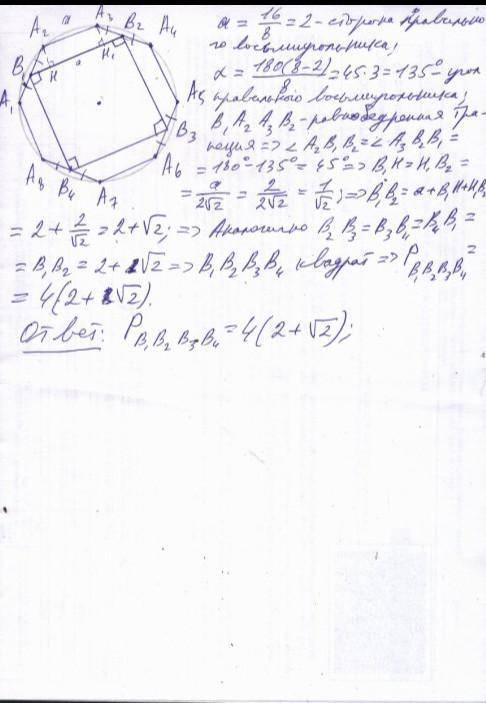 A₂ a A₃ B₂ A₄
B₁ H a H₁
A₁ A₅
B₃
A₆
A₈ B₄ A₇
a = 16/8 = 2 - сторона правильно
го восьмиугольника;
α = 180(8-2)/8 = 45·3 = 135° - угол
правильного восьмиугольника;
B₁A₂A₃B₂ - равнобедренная тра-
пеция => ∠A₂B₁B₂ = ∠A₃B₂B₁ =
= 180° - 135° = 45° => B₁H = H₁B₂ =
= a/2√2 = 2/2√2 = 1/√2; => B₁B₂ = a + B₁H + H₁B₂
= 2 + 2/√2 = 2 + √2; => Аналогично B₂B₃ = B₃B₄ = B₄B₁ =
= B₁B₂ = 2 + √2 => B₁B₂B₃B₄ квадрат => P B₁B₂B₃B₄ =
= 4(2 + √2).
Ответ: P B₁B₂B₃B₄ = 4(2 + √2);